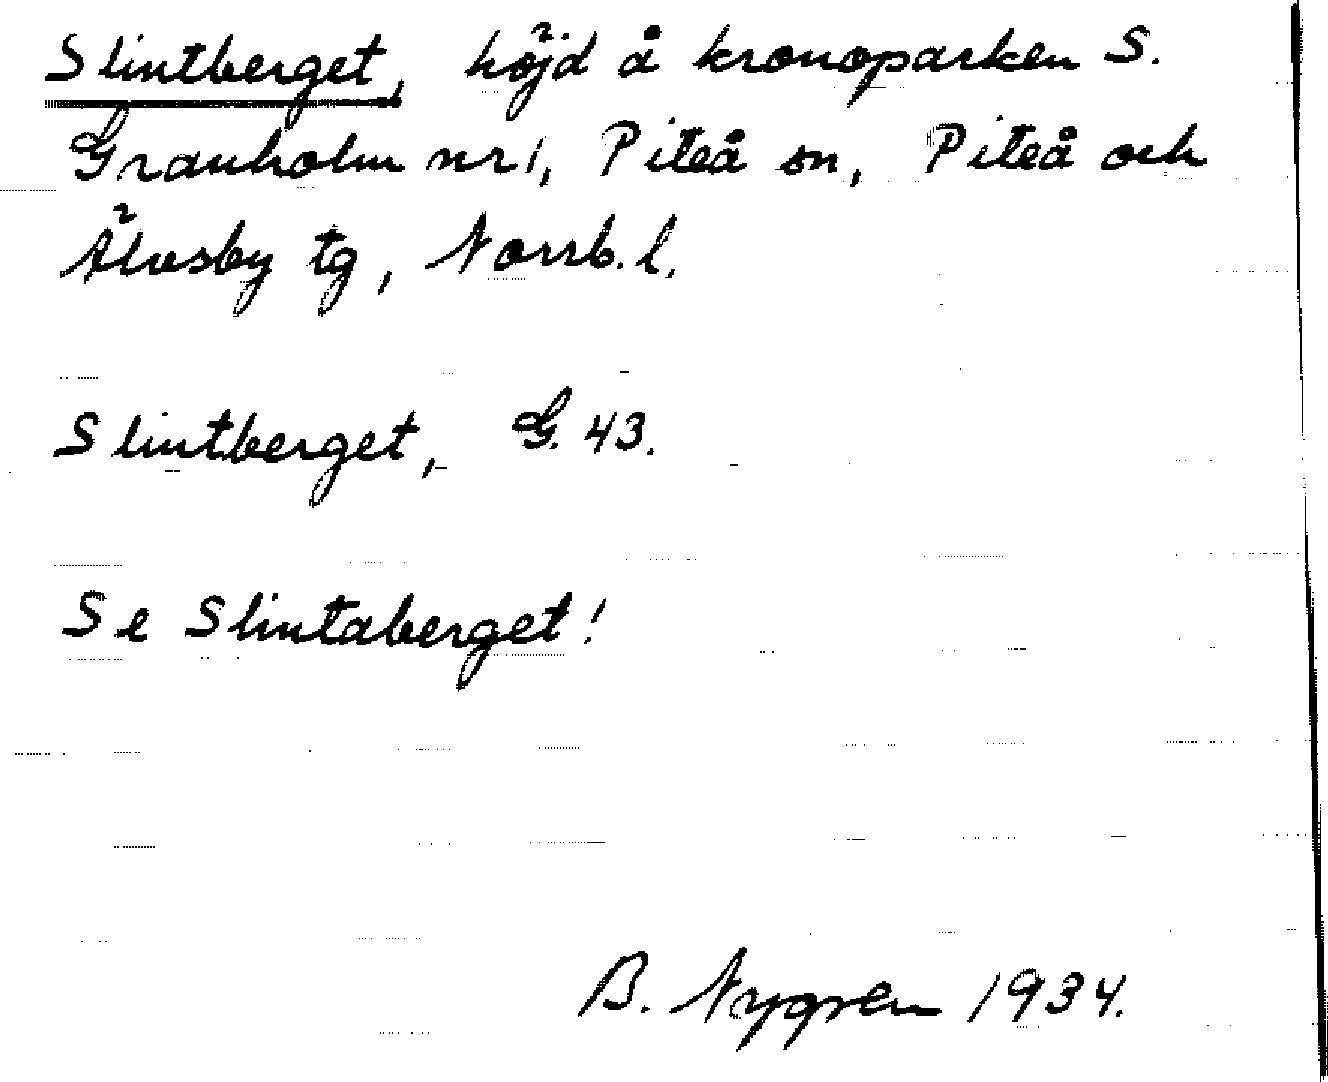 Slintberget, höjd å kronoparken S.
Granholm nr 1, Piteå sn, Piteå och
Älvsby tg, Norrb. l.
Slintberget, G. 43.
Se Slintaberget!
B. Nygren 1934.